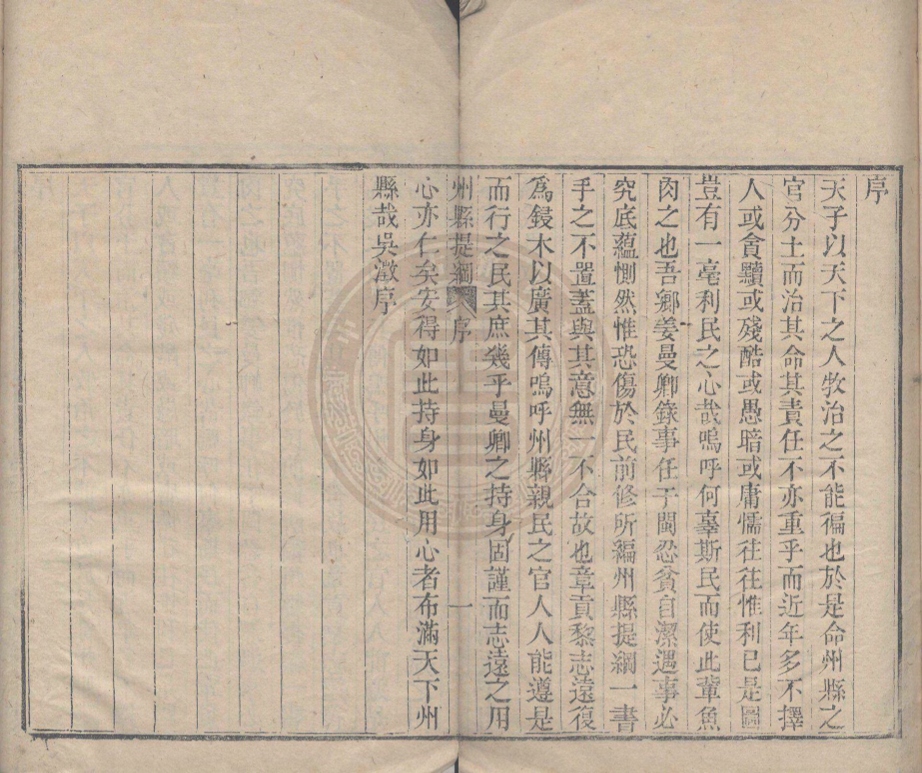 序
天子以天下之人牧治之不能徧也於是命州縣之
官分土而治其命其責任不亦重乎而近年多不擇
人或貪黷或殘酷或愚暗或庸懦往往惟利已是圖
豈有一毫利民之心哉嗚呼何辜斯民而使此輩魚
肉之也吾鄉姜曼卿錄事任于閩忍貧自潔遇事必
究底蘊惻然惟恐傷於民前修所編州縣提綱一書
手之不置蓋與其意無一不合故也章貢黎志遠復
爲鋟木以廣其傳嗚呼州縣親民之官人人能遵是
而行之民其庶幾乎曼卿之持身固謹而志遠之用
州縣提綱 序 一
心亦仁矣安得如此持身如此用心者布滿天下州
縣哉吳澂序